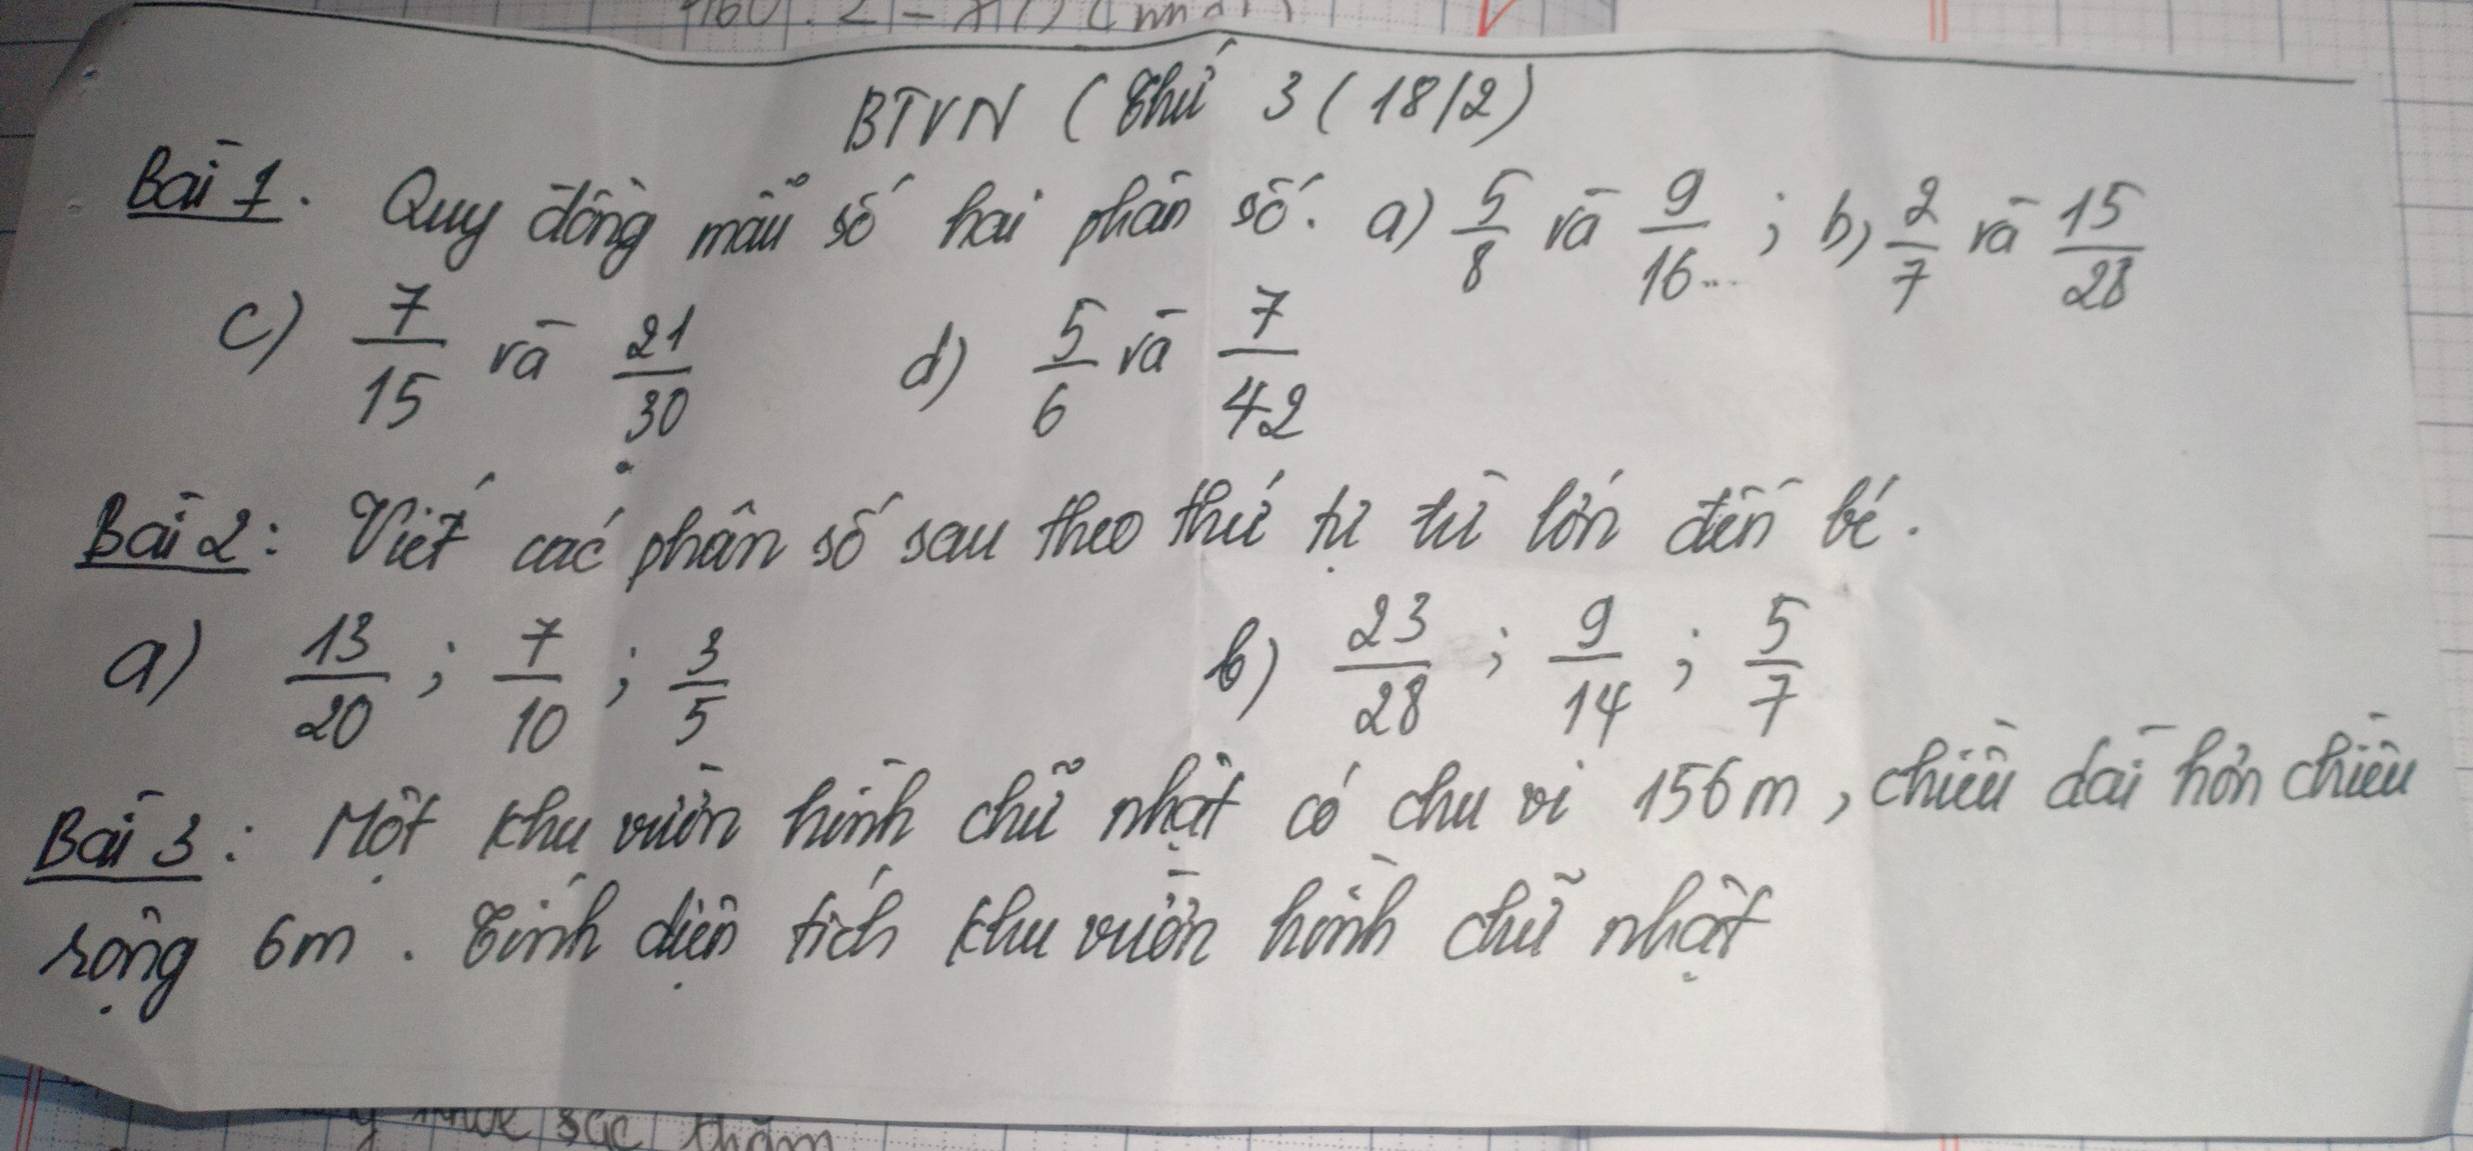 BTVN (Thứ 3 (18/2)
Bài 1. Quy đồng mẫu số hai phân số. a) 5/8 và 9/16 ; b) 2/7 và 15/28
c) 7/15 và 21/30 d) 5/6 và 7/42
Bài 2: Viết các phân số sau theo thứ tự từ lớn đến bé.
a) 13/20 ; 7/10 ; 3/5 b) 23/28 ; 9/14 ; 5/7
Bài 3: Một khu vườn hình chữ nhật có chu vi 156m, chiều dài hơn chiều
rộng 6m. Tính diện tích khu vườn hình chữ nhật